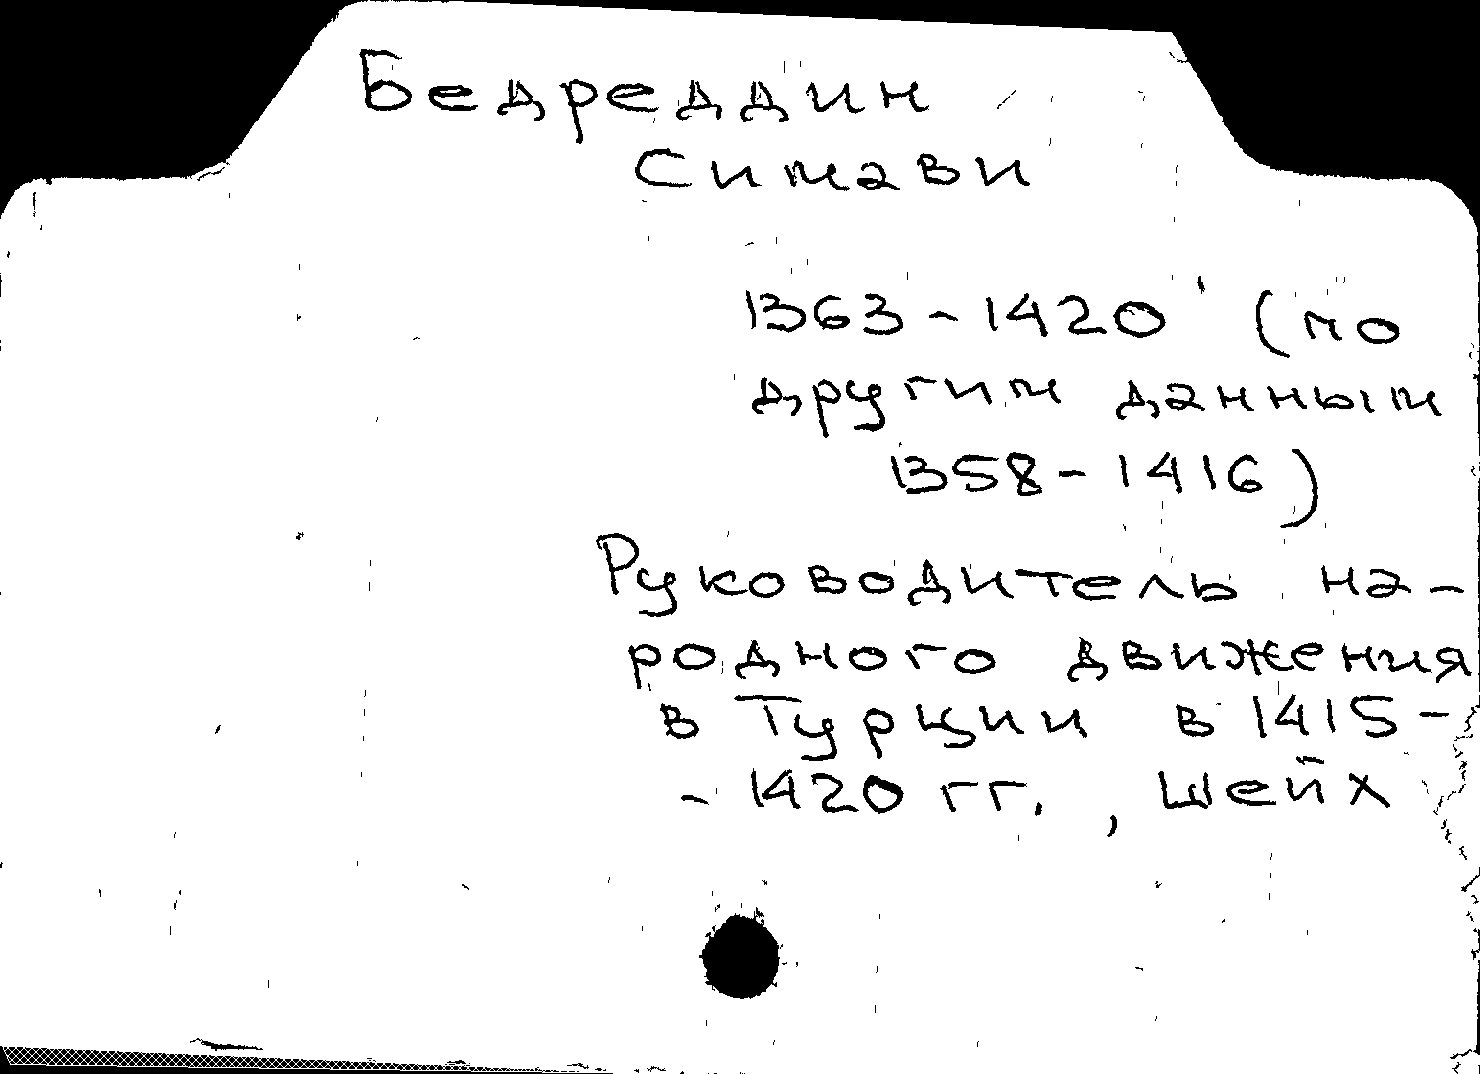 Бедреддин
Симави
1363-1420 (по
другим данным
1358-1416)
Руководитель на-
родного движения
в Турции в 1415-
-1420 гг., шейх